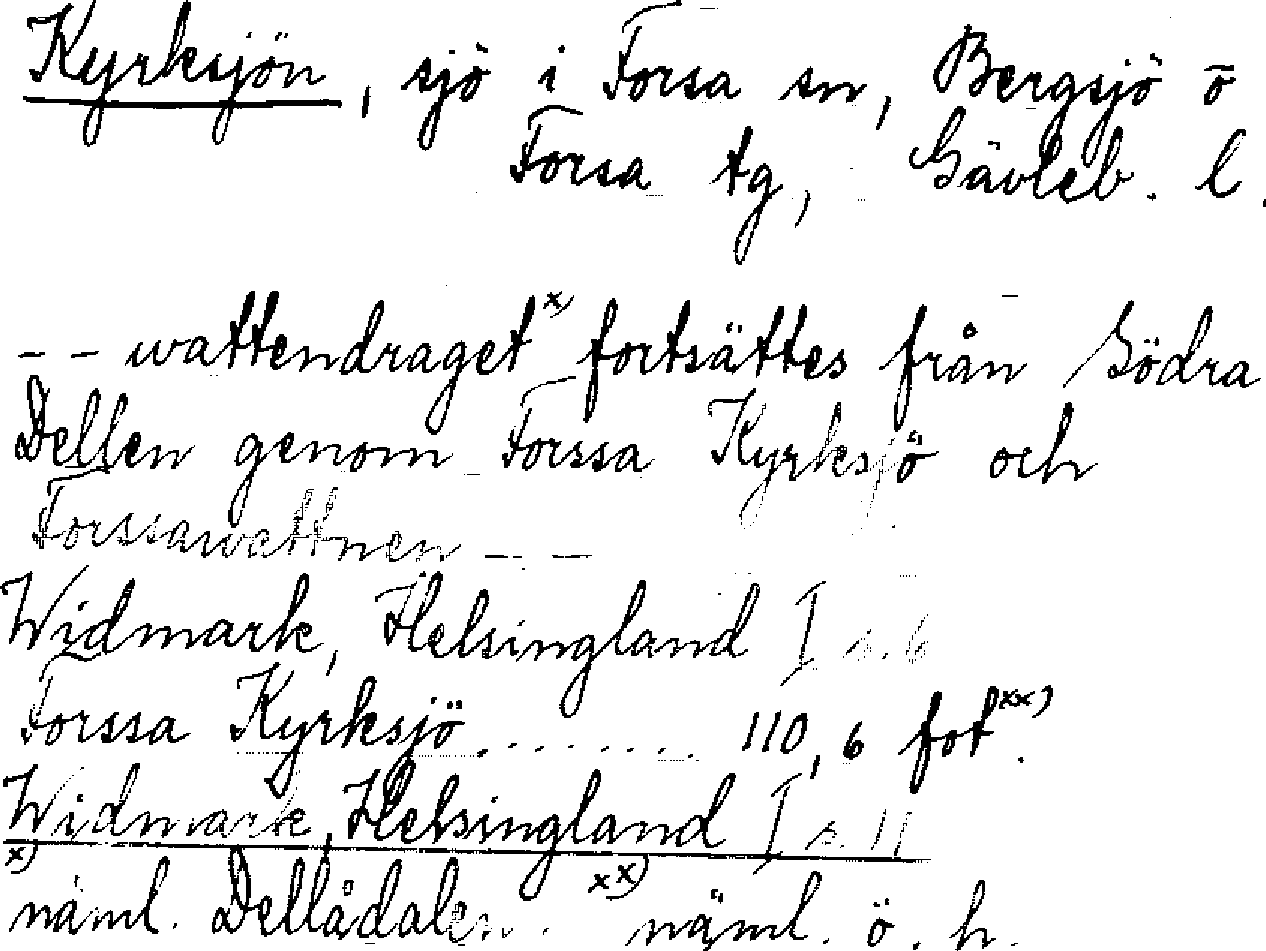 Kyrksjön, sjö i Forsa sn, Bergsjö o
Forsa tg, Gävleb. l.
-- wattendraget x) fortsättes från Södra
Dellen genom Forssa Kyrksjö och
Forssawattnen --
Widmark, Helsingland I s. 6
Forssa Kyrksjö ........ 110,6 fot xx).
Widmark, Helsingland I s. 11
x) näml. Dellådalen. xx) näml. ö. h.